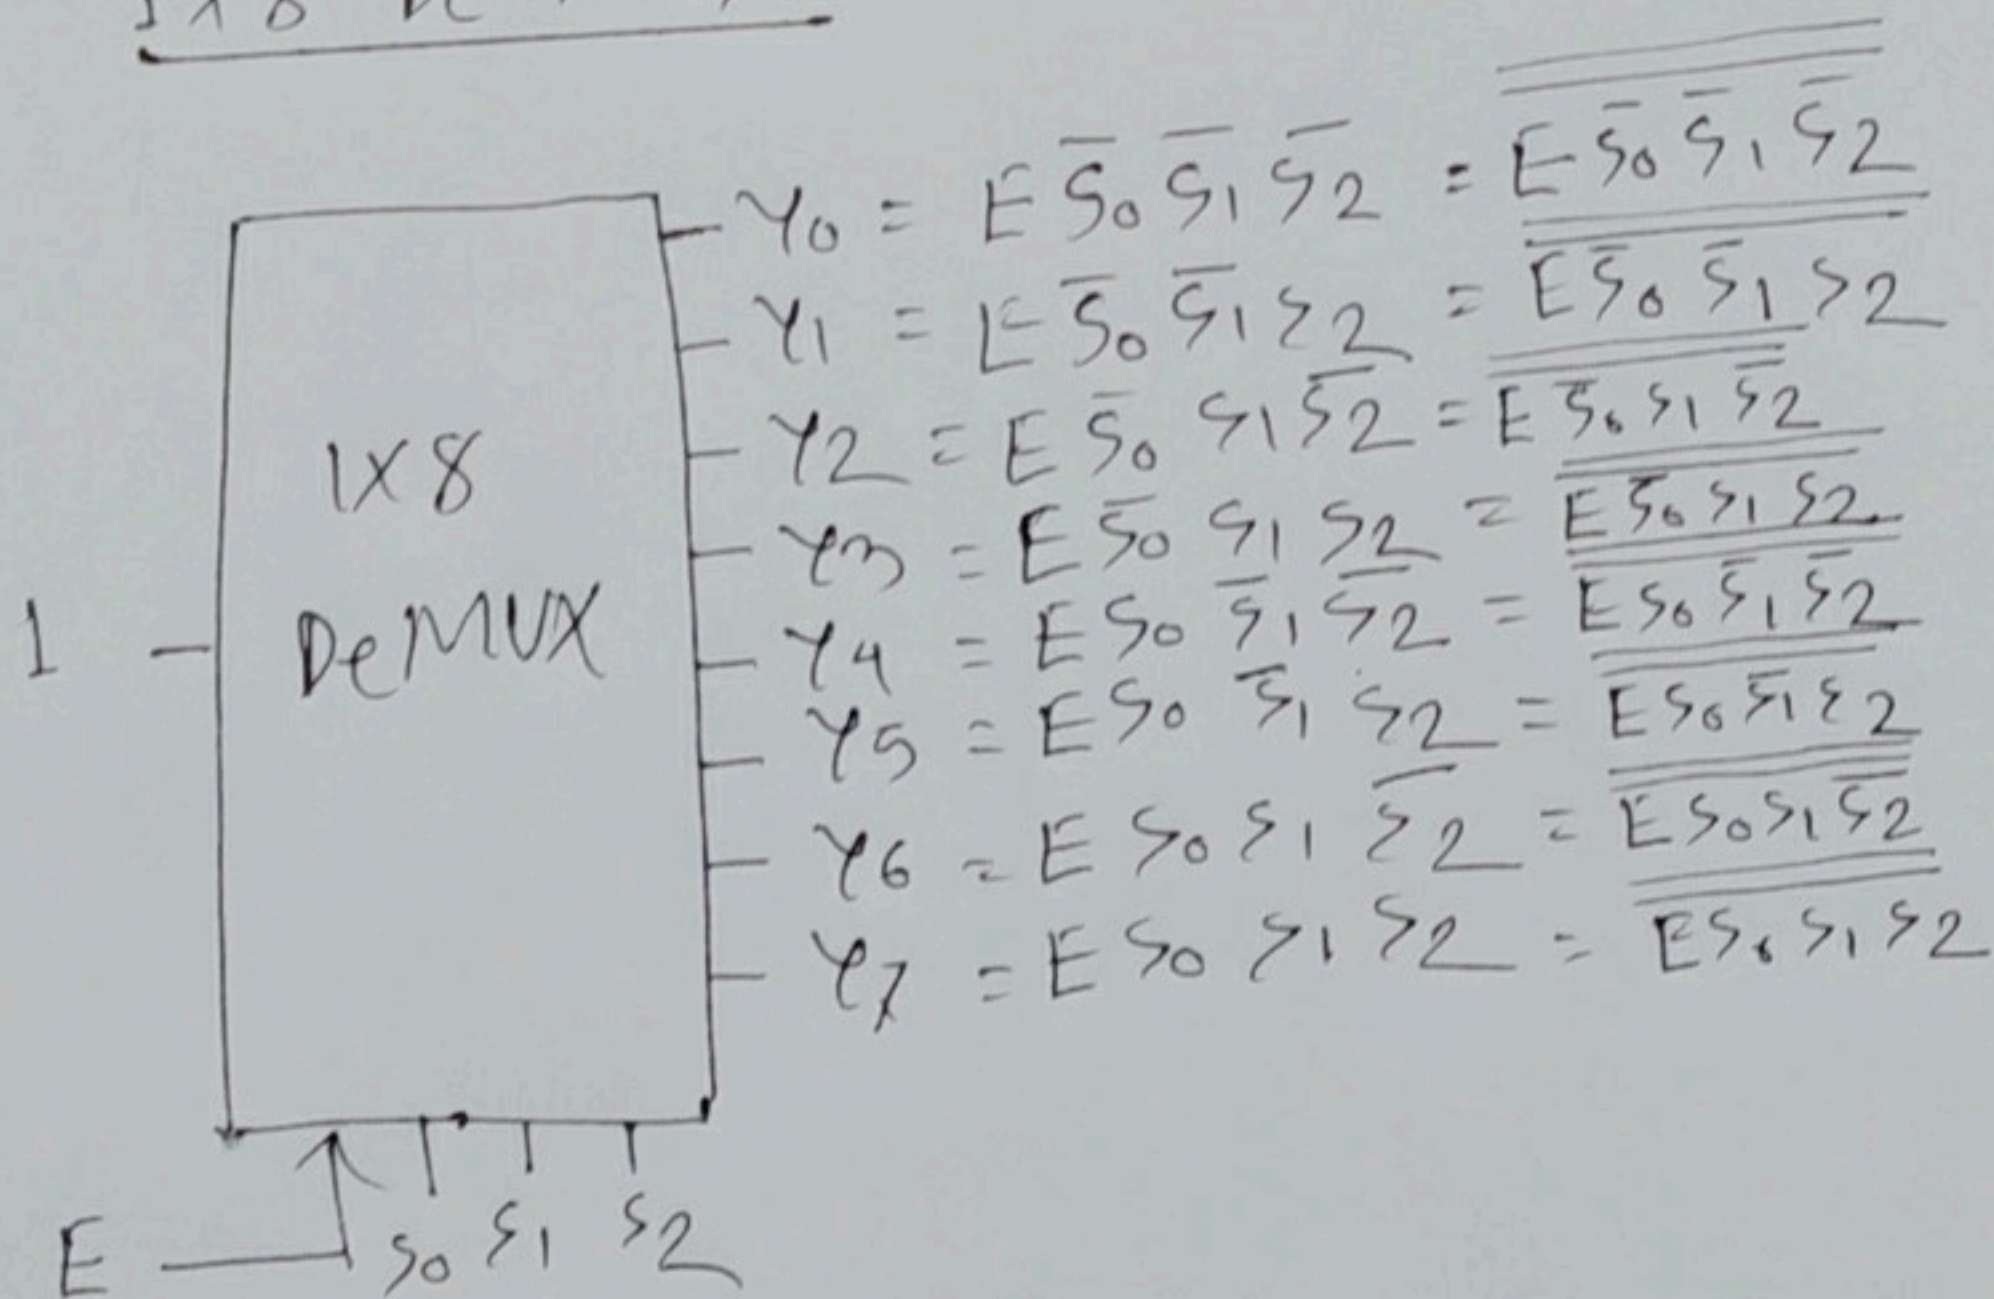 Y0 = E S̅0 S̅1 S̅2 = E̿ ̿S̿̅0̿ ̿S̿̅1̿ ̿S̿̅2̿
Y1 = E S̅0 S̅1 S2 = E̿ ̿S̿̅0̿ ̿S̿̅1̿ ̿S̿2̿
Y2 = E S̅0 S1 S̅2 = E̿ ̿S̿̅0̿ ̿S̿1̿ ̿S̿̅2̿
1X8
Y3 = E S̅0 S1 S2 = E̿ ̿S̿̅0̿ ̿S̿1̿ ̿S̿2̿
1
DeMUX
Y4 = E S0 S̅1 S̅2 = E̿ ̿S̿0̿ ̿S̿̅1̿ ̿S̿̅2̿
Y5 = E S0 S̅1 S2 = E̿ ̿S̿0̿ ̿S̿̅1̿ ̿S̿2̿
Y6 = E S0 S1 S̅2 = E̿ ̿S̿0̿ ̿S̿1̿ ̿S̿̅2̿
Y7 = E S0 S1 S2 = E̿ ̿S̿0̿ ̿S̿1̿ ̿S̿2̿
E S0 S1 S2